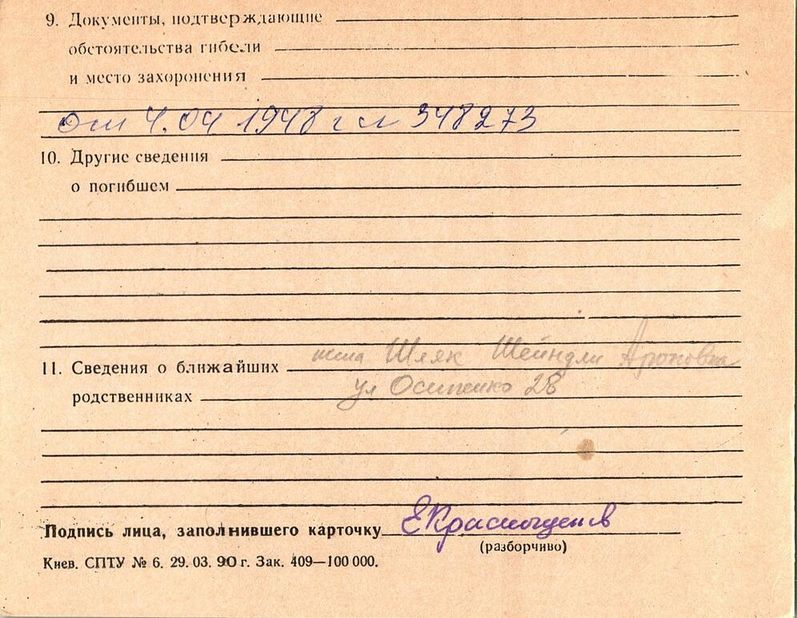 9. Документы, подтверждающие
обстоятельства гибели
и место захоронения
от 4.04 1948 г № 348273
10. Другие сведения
о погибшем
жена Шляк Шейндли Ароновна
11. Сведения о ближайших
ул Осипенко 28
родственниках
Подпись лица, заполнившего карточку
(разборчиво)
Киев. СПТУ № 6. 29. 03. 90 г. Зак. 409—100 000.